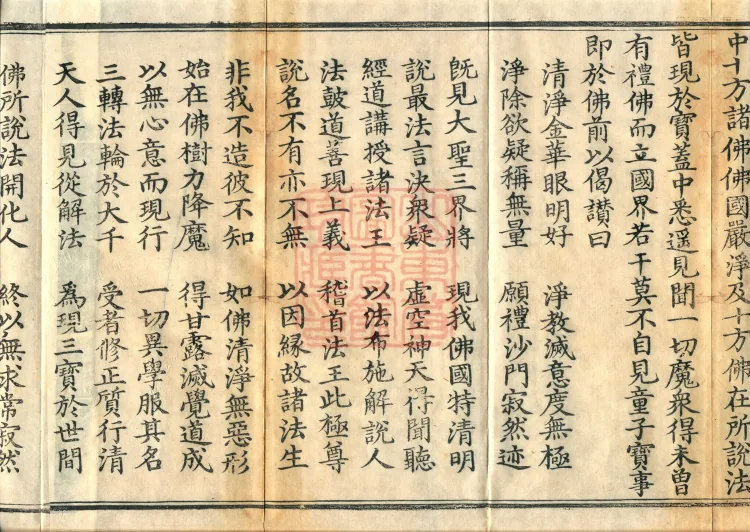 中十方諸佛佛國嚴淨及十方佛在所說法
皆現於寶蓋中悉遥見聞一切魔衆得未曾
有禮佛而立國界若干莫不自見童子寶事
即於佛前以偈讃曰
清淨金華眼明好　淨教滅意度無極
淨除欲疑稱無量　願禮沙門寂然迹
旣見大聖三界將　現我佛國特清明
說最法言決衆疑　虛空神天得聞聽
經道講授諸法王　以法布施解說人
法鼓道善現上義　稽首法王此極尊
說名不有亦不無　以因緣故諸法生
非我不造彼不知　如佛清淨無惡形
始在佛樹力降魔　得甘露滅覺道成
以無心意而現行　一切異學服其名
三轉法輪於大千　受者修正質行清
天人得見從解法　爲現三寶於世間
佛所說法開化人　終以無求常寂然